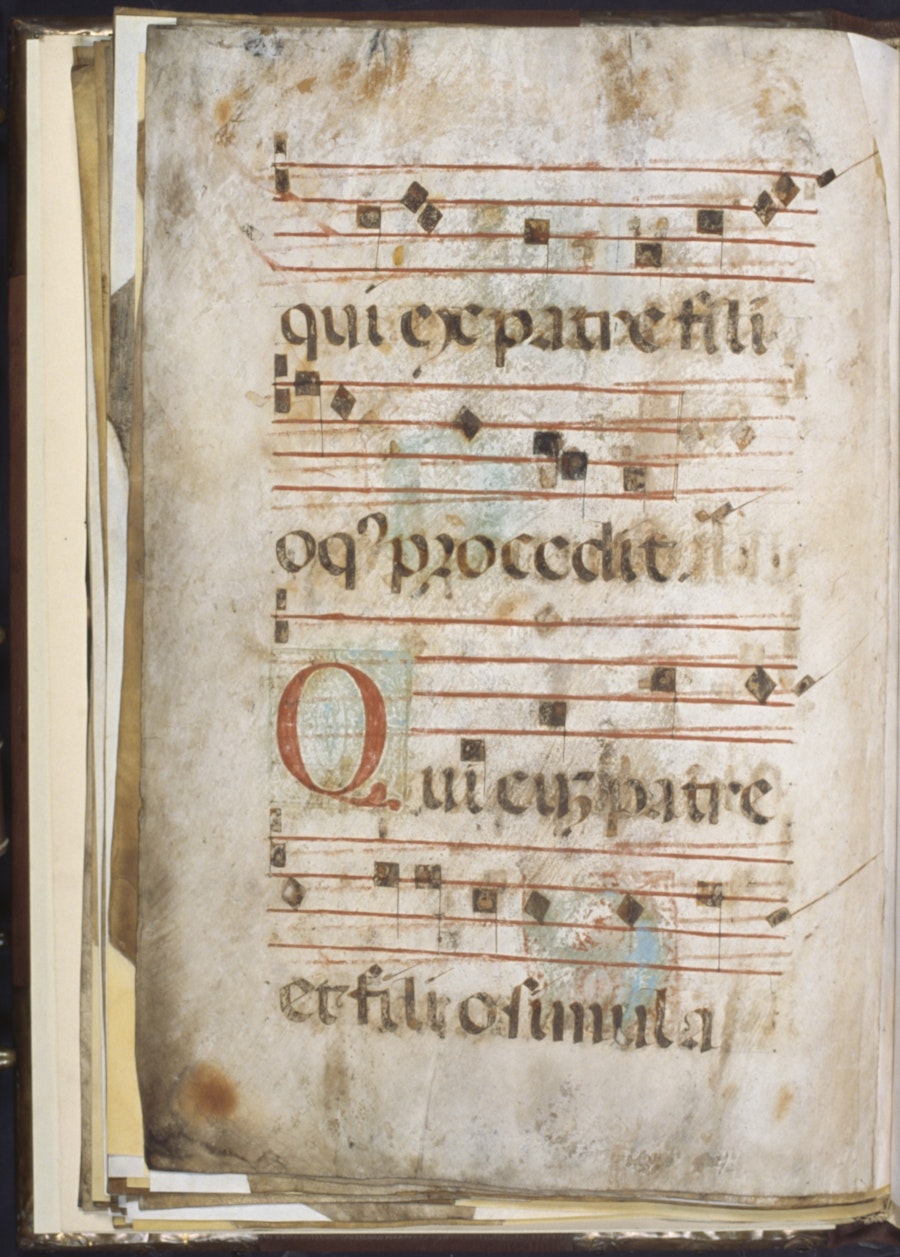 qui ex patre fili
oq̄ꝫ procedit.
Qui cuꝫ patre
et filio simul a